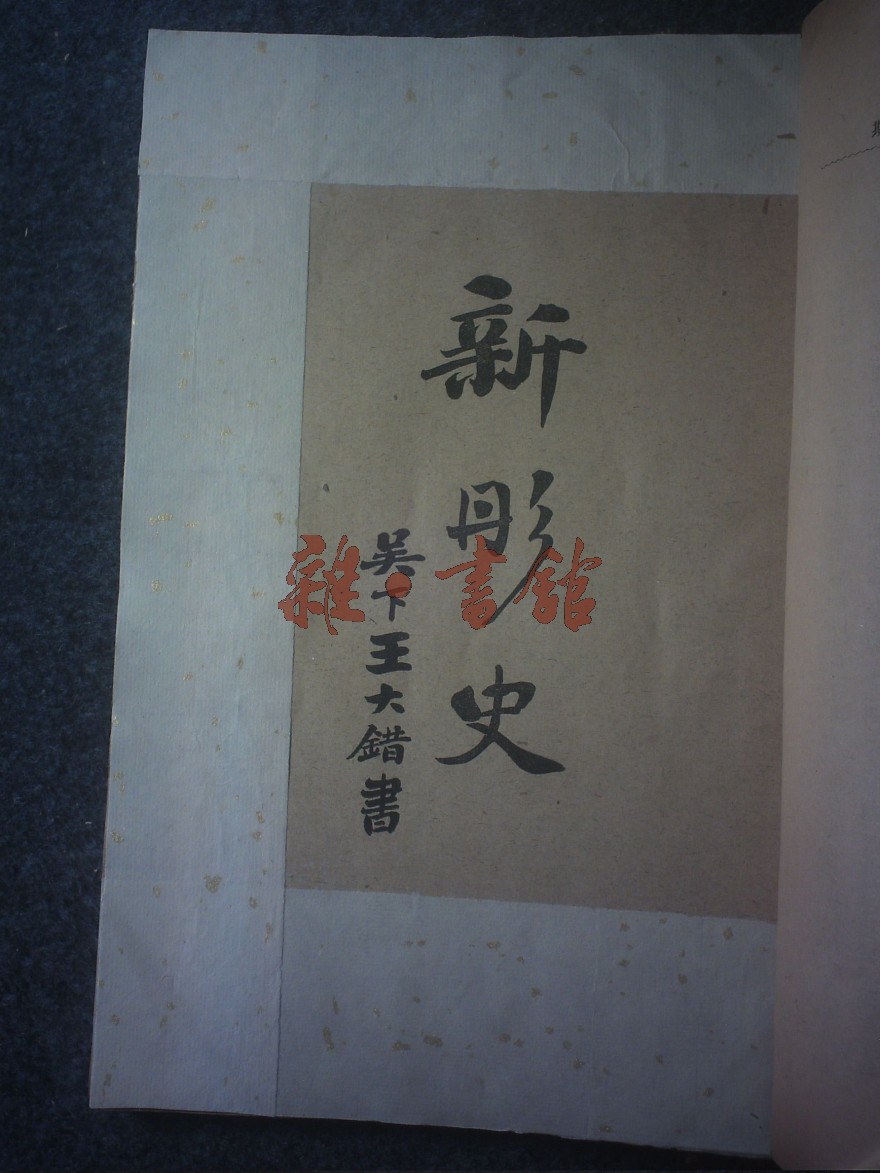 新彤史
吳下王大錯書
雜·書館